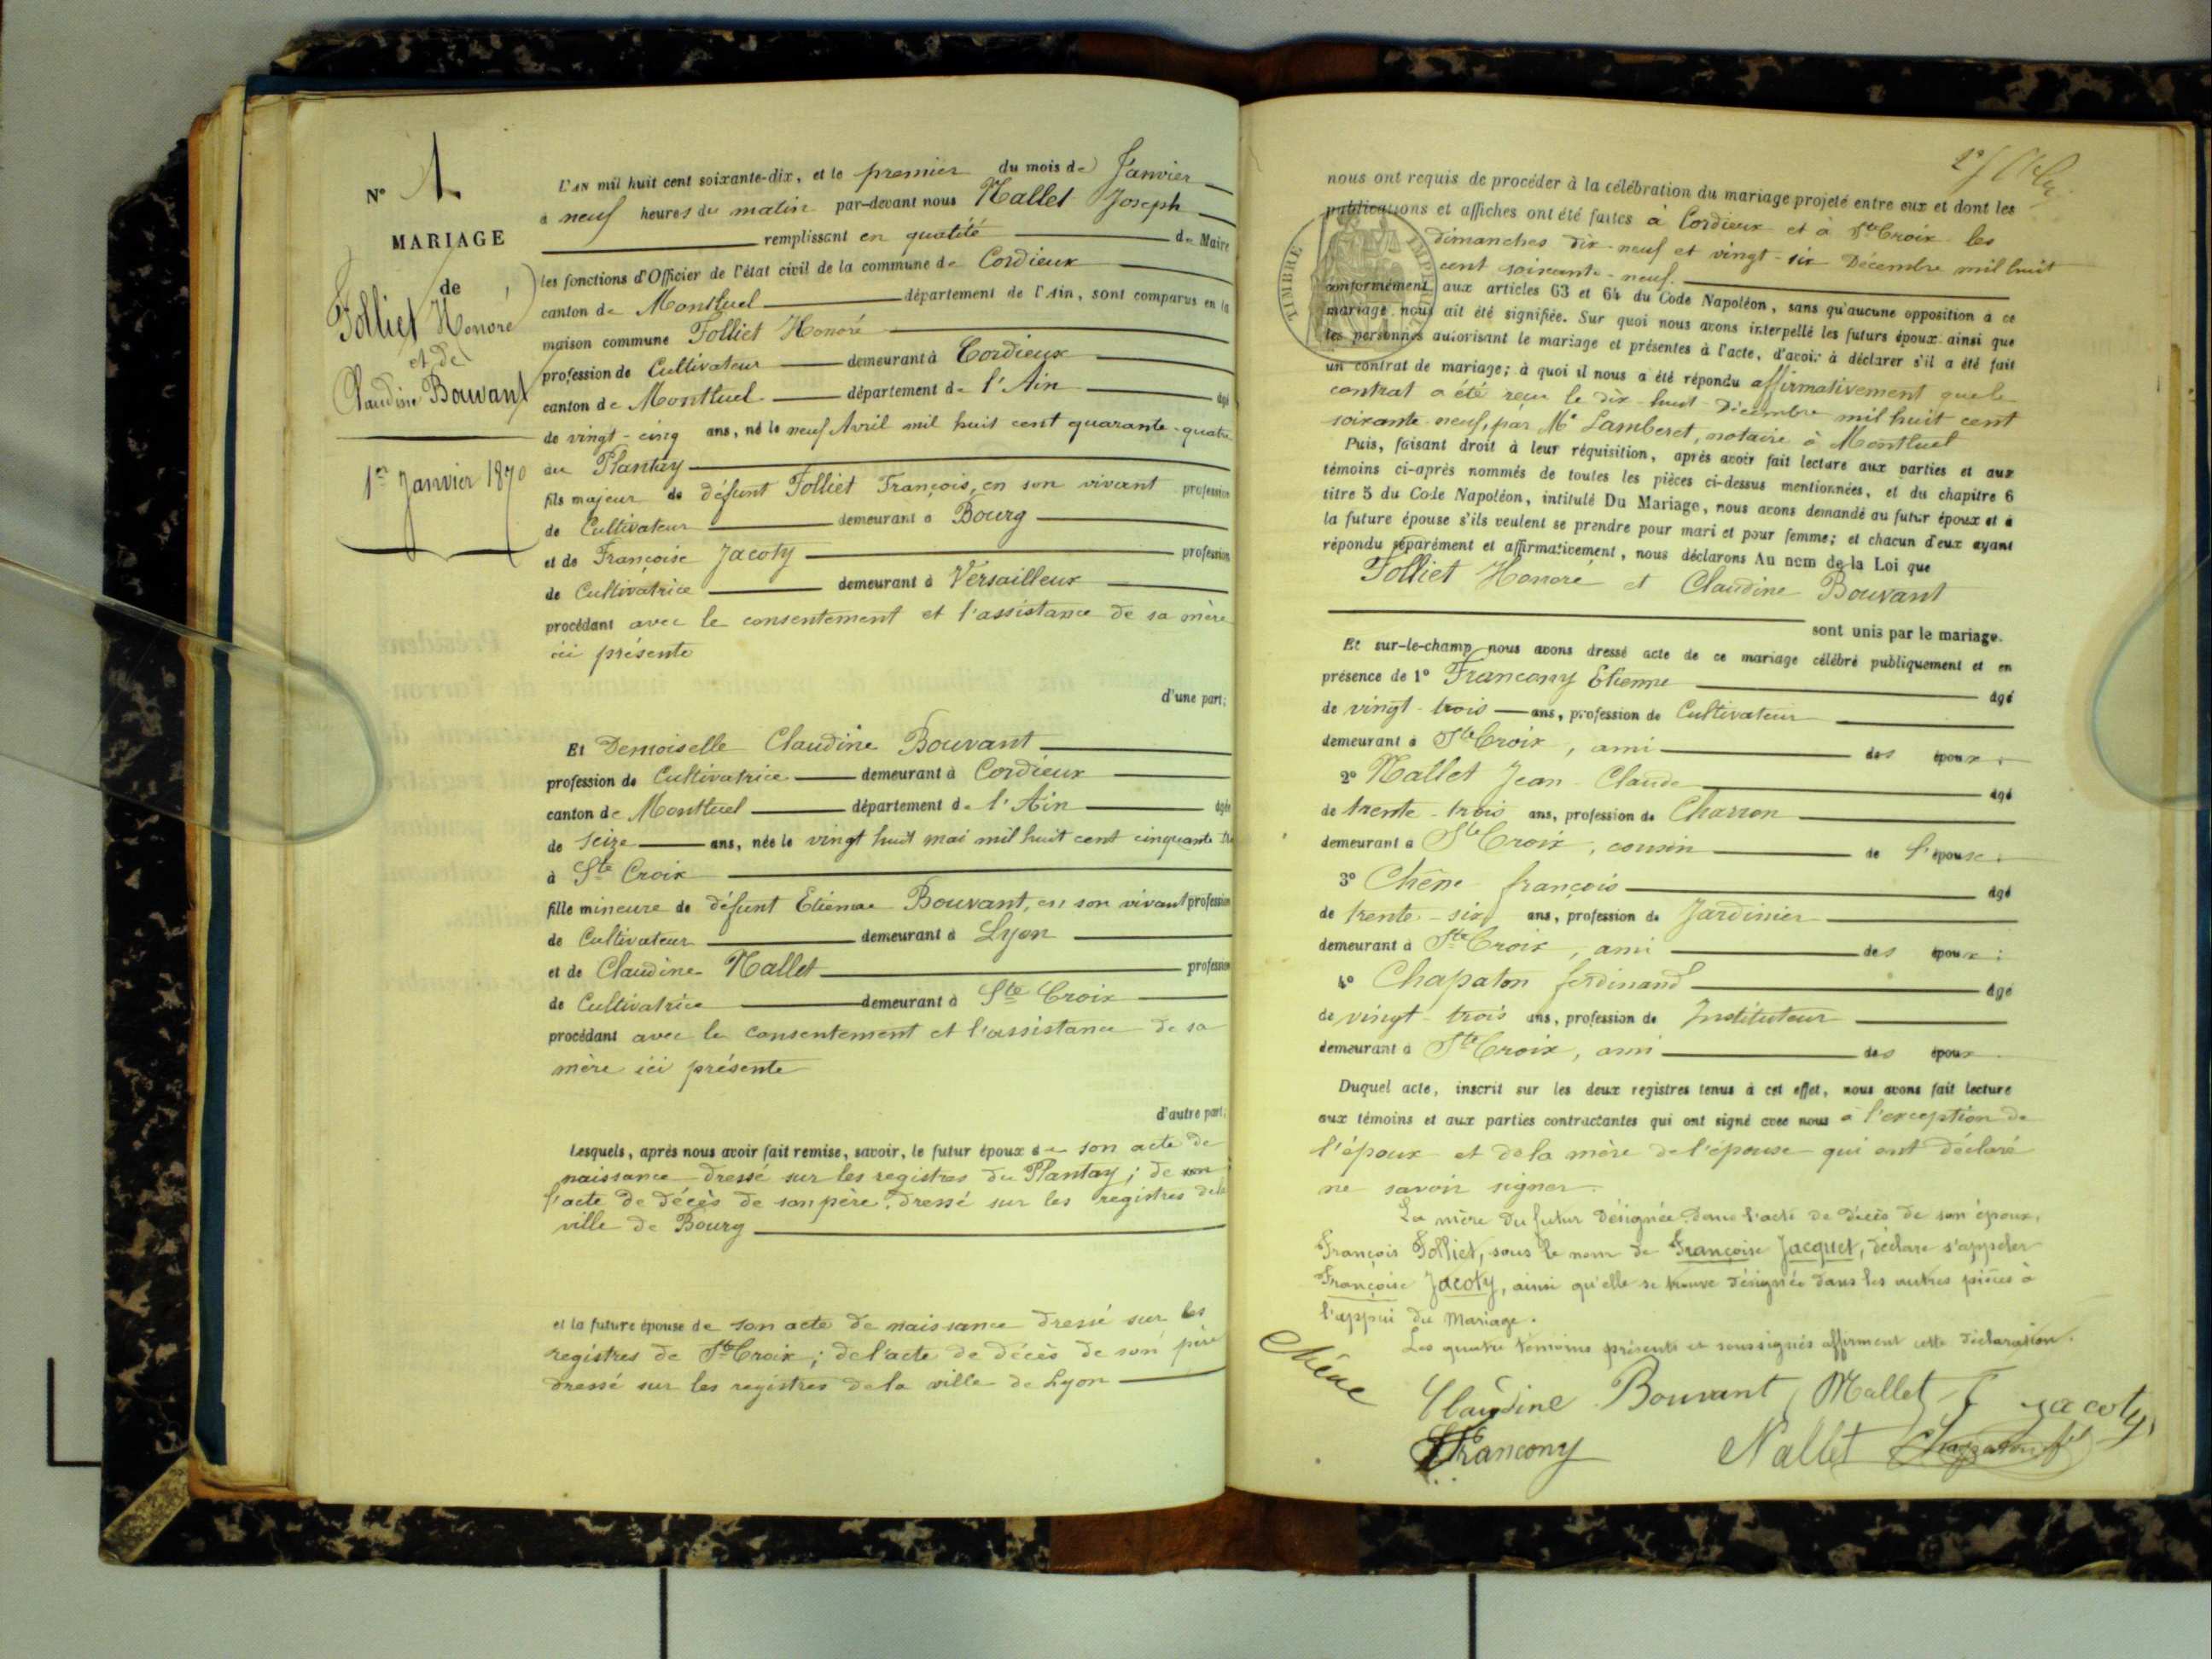 N° 1.
MARIAGE
de
Folliet Honoré
et de
Claudine Bouvant
1er Janvier 1870
L'AN mil huit cent soixante-dix, et le premier du mois de Janvier
à neuf heures du matin par-devant nous Nallet Joseph
remplissant en qualité de Maire
les fonctions d'Officier de l'état civil de la commune de Cordieux
canton de Montluel département de l'Ain, sont comparus en la
maison commune Folliet Honoré
profession de Cultivateur demeurant à Cordieux
canton de Montluel département de l'Ain âgé
de vingt-cinq ans, né le neuf Avril mil huit cent quarante-quatre
au Plantay
fils majeur de défunt Folliet François, en son vivant profession
de Cultivateur demeurant à Bourg
et de Françoise Jacoty profession
de Cultivatrice demeurant à Versailleux
procédant avec le consentement et l'assistance de sa mère
ici présente
d'une part;
Et Demoiselle Claudine Bouvant
profession de Cultivatrice demeurant à Cordieux
canton de Montluel département de l'Ain âgée
de seize ans, née le vingt huit mai mil huit cent cinquante
à Ste Croix
fille mineure de défunt Etienne Bouvant, en son vivant profession
de Cultivateur demeurant à Lyon
et de Claudine Nallet profession
de Cultivatrice demeurant à Ste Croix
procédant avec le consentement et l'assistance de sa
mère ici présente
d'autre part;
Lesquels, après nous avoir fait remise, savoir, le futur époux de son acte de
naissance dressé sur les registres du Plantay; de son
l'acte de décès de son père, dressé sur les registres de la
ville de Bourg
et la future épouse de son acte de naissance dressé sur les
registres de Ste Croix; de l'acte de décès de son père
dressé sur les registres de la ville de Lyon
nous ont requis de procéder à la célébration du mariage projeté entre eux et dont les
publications et affiches ont été faites à Cordieux et à Ste Croix les
dimanches dix-neuf et vingt-six Décembre mil huit
cent soixante-neuf.
TIMBRE IMPERIAL
conformément aux articles 63 et 64 du Code Napoléon, sans qu'aucune opposition à ce
mariage nous ait été signifiée. Sur quoi nous avons interpellé les futurs époux ainsi que
les personnes autorisant le mariage et présentes à l'acte, d'avoir à déclarer s'il a été fait
un contrat de mariage; à quoi il nous a été répondu affirmativement que le
contrat a été reçu le dix-huit Décembre mil huit cent
soixante-neuf, par Me Lamberet, notaire à Montluel
Puis, faisant droit à leur réquisition, après avoir fait lecture aux parties et aux
témoins ci-après nommés de toutes les pièces ci-dessus mentionnées, et du chapitre 6
titre 5 du Code Napoléon, intitulé Du Mariage, nous avons demandé au futur époux et à
la future épouse s'ils veulent se prendre pour mari et pour femme; et chacun d'eux ayant
répondu séparément et affirmativement, nous déclarons Au nom de la Loi que
Folliet Honoré et Claudine Bouvant
sont unis par le mariage.
Et sur-le-champ nous avons dressé acte de ce mariage célébré publiquement et en
présence de 1° Francony Etienne âgé
de vingt-trois ans, profession de Cultivateur
demeurant à Ste Croix, ami des époux;
2° Nallet Jean-Claude âgé
de trente-trois ans, profession de Charron
demeurant à Ste Croix, cousin de l'épouse;
3° Chêne françois âgé
de trente-six ans, profession de Jardinier
demeurant à Ste Croix, ami des époux;
4° Chapaton ferdinand âgé
de vingt-trois ans, profession de Instituteur
demeurant à Ste Croix, ami des époux
Duquel acte, inscrit sur les deux registres tenus à cet effet, nous avons fait lecture
aux témoins et aux parties contractantes qui ont signé avec nous à l'exception de
l'époux et de la mère de l'épouse qui ont déclaré
ne savoir signer.
La mère du futur désignée dans l'acte de décès de son époux,
François Folliet, sous le nom de Françoise Jacquet, déclare s'appeler
Françoise Jacoty, ainsi qu'elle se trouve désignée dans les autres pièces à
l'appui du Mariage.
Les quatre témoins présents et soussignés affirment cette déclaration.
Chêne
Claudine Bouvant Mallet F Jacoty
Francony Nallet Chapaton fd